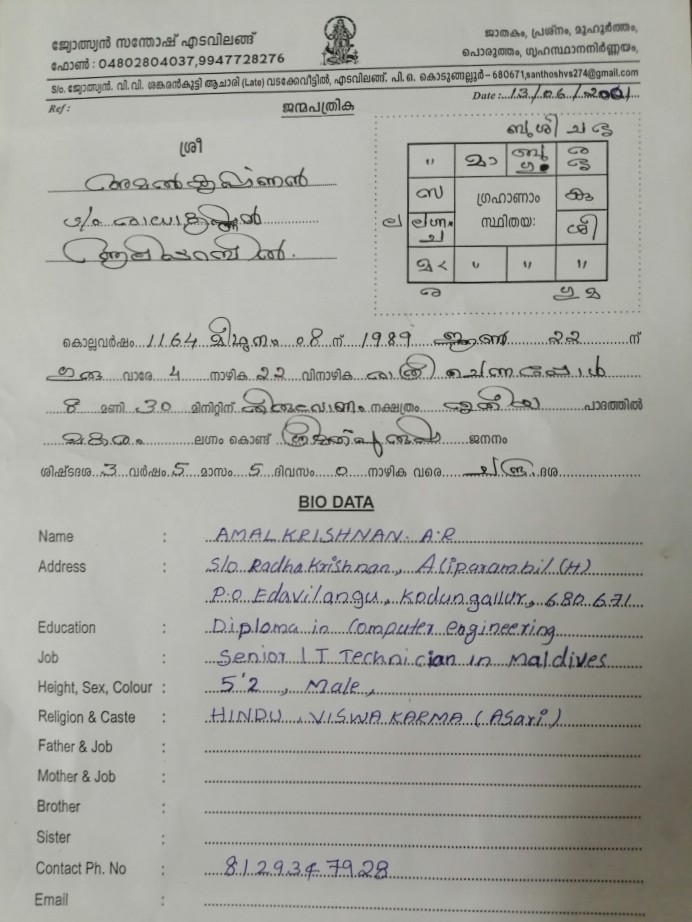 ജ്യോത്സ്യൻ സന്തോഷ് എടവിലങ്ങ്
ഫോൺ : 04802804037,9947728276
ജാതകം, പ്രശ്നം, മുഹൂർത്തം,
പൊരുത്തം, ഗൃഹസ്ഥാനനിർണ്ണയം,
S/o. ജ്യോത്സ്യൻ. വി.വി. ശങ്കരൻകുട്ടി ആചാരി (Late) വടക്കേവീട്ടിൽ, എടവിലങ്ങ്. പി. ഒ. കൊടുങ്ങല്ലൂർ – 680671,santhoshvs274@gmail.com
Ref :
ജന്മപത്രിക
Date : 13/06/2021
ശ്രീ
അമൽകൃഷ്ണൻ
S/o രാധാകൃഷ്ണൻ
ആലിപറമ്പിൽ.
ബു ശി ച
" മാ ബു ഗു
സ ഗ്രഹാണാം കു
ല ലഗ്നം ച സ്ഥിതയഃ ശി
മ " " "
കൊല്ലവർഷം 1164 മിഥുനം 08 ന് 1989 ജൂൺ 22 ന്
വാരേ 4 നാഴിക 22 വിനാഴിക രാത്രി ചെന്നപ്പോൾ
8 മണി 30 മിനിറ്റിന് തിരുവോണം നക്ഷത്രം പാദത്തിൽ
മകരം ലഗ്നം കൊണ്ട് ജനനം
ശിഷ്ടദശ 3 വർഷം 5 മാസം 5 ദിവസം 0 നാഴിക വരെ ചന്ദ്ര ദശ
BIO DATA
Name : AMAL KRISHNAN. A.R
Address : S/o Radhakrishnan, Aliparambil (H)
P.O Edavilangu, Kodungallur, 680671
Education : Diploma in Computer engineering
Job : Senior IT Technician in Maldives
Height, Sex, Colour : 5'2 , Male,
Religion & Caste : HINDU, VISWAKARMA (Asari)
Father & Job :
Mother & Job :
Brother :
Sister :
Contact Ph. No : 8129347928
Email :